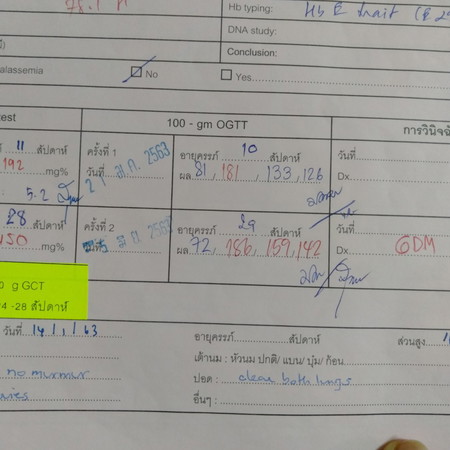 Hb typing: Hb E trait
DNA study:
Conclusion:
alassemia No Yes
est 100 - gm OGTT การวินิจฉั
11 สัปดาห์ ครั้งที่ 1 อายุครรภ์ 10 สัปดาห์ วันที่
192 mg% 2563 ผล 81, 181, 133, 126 Dx.
5.2
28 สัปดาห์ ครั้งที่ 2 อายุครรภ์ 29 สัปดาห์ วันที่
mg% ผล 72, 186, 159, 142 Dx. GDM
g GCT
4 -28 สัปดาห์
วันที่ 14/1/63 อายุครรภ์ สัปดาห์ ส่วนสูง
เต้านม : หัวนม ปกติ/ แบน/ บุ๋ม/ ก้อน
no murmur ปอด : clear both lungs
อื่นๆ :